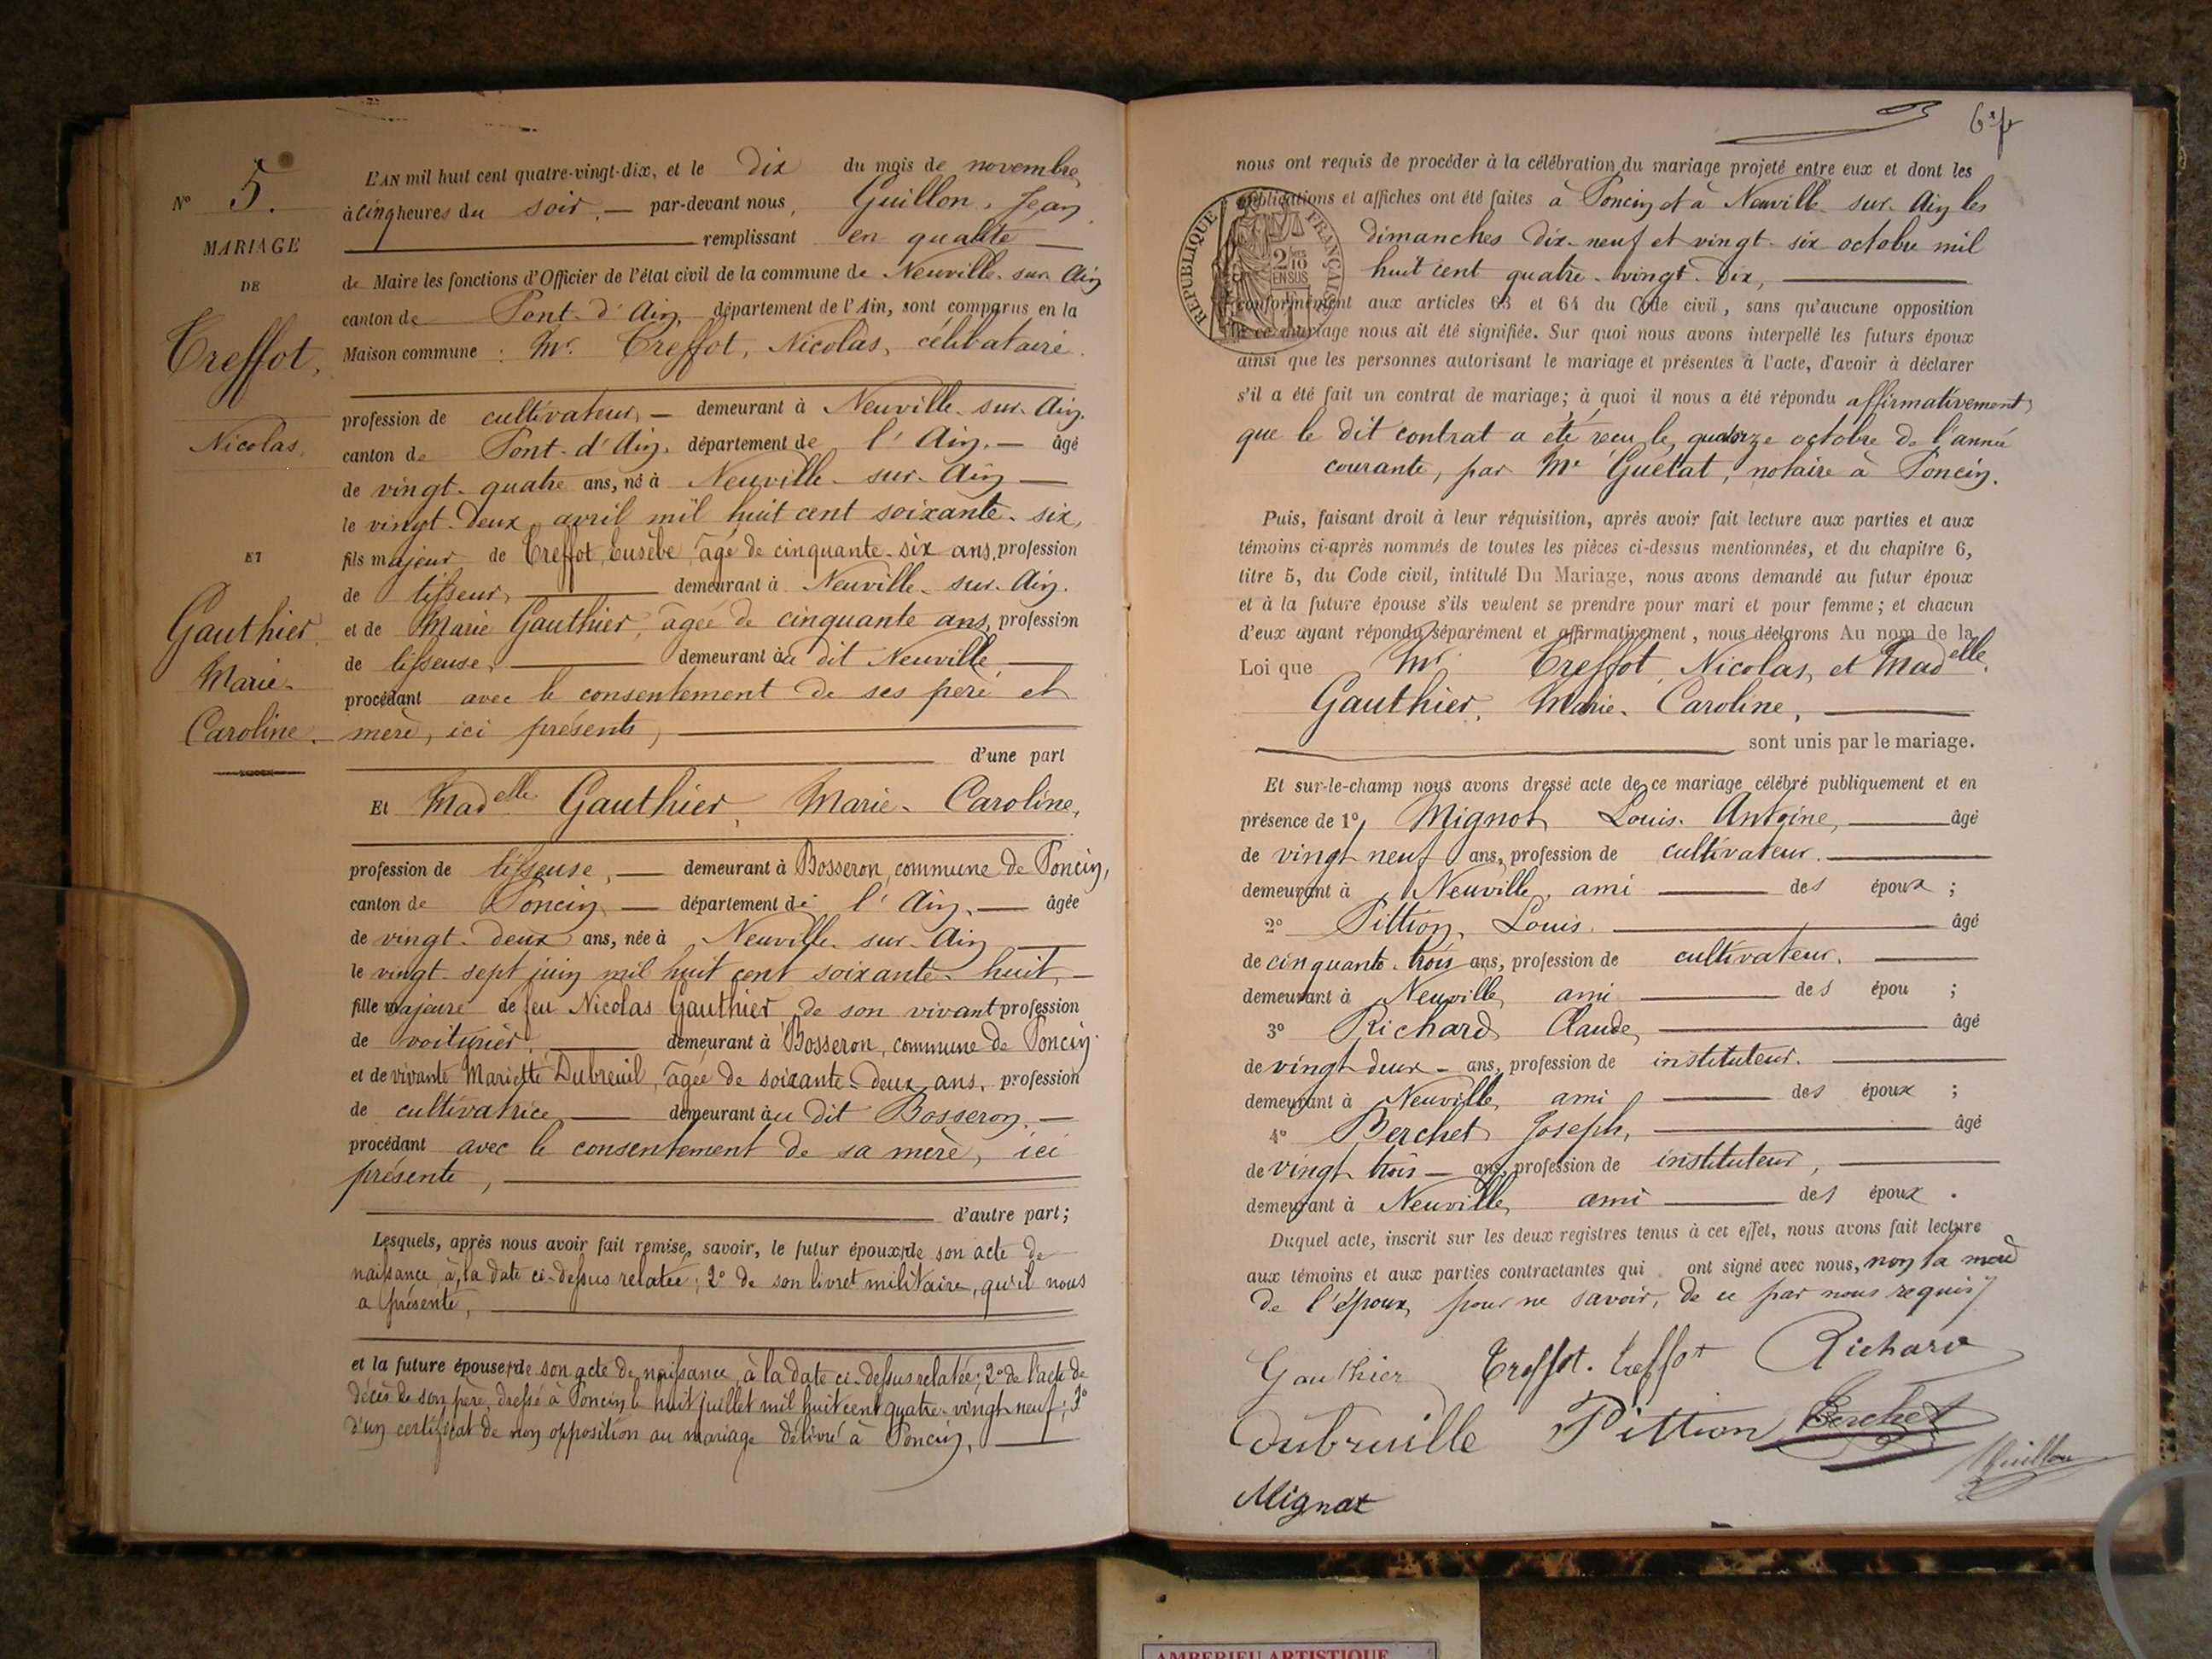 N° 5.
MARIAGE
DE
Treffot,
Nicolas,
ET
Gauthier,
Marie-
Caroline.
L'AN mil huit cent quatre-vingt-dix, et le dix du mois de novembre,
à cinq heures du soir, — par-devant nous, Guillon, Jean,
remplissant en qualité
de Maire les fonctions d'Officier de l'état civil de la commune de Neuville-sur-Ain
canton de Pont-d'Ain, département de l'Ain, sont comparus en la
Maison commune : Mr. Treffot, Nicolas, célibataire.
profession de cultivateur, — demeurant à Neuville-sur-Ain,
canton de Pont-d'Ain, département de l'Ain, — âgé
de vingt-quatre ans, né à Neuville-sur-Ain —
le vingt-deux avril mil huit cent soixante-six,
fils majeur de Treffot, Eusèbe, âgé de cinquante-six ans, profession
de tisseur, demeurant à Neuville-sur-Ain.
et de Marie Gauthier, âgée de cinquante ans, profession
de tisseuse, demeurant au dit Neuville
procédant avec le consentement de ses père et
mère, ici présents,
d'une part
Et Madelle Gauthier, Marie-Caroline,
profession de tisseuse, — demeurant à Bosseron, commune de Poncin,
canton de Poncin — département de l'Ain, — âgée
de vingt-deux ans, née à Neuville-sur-Ain
le vingt-sept juin mil huit cent soixante-huit, —
fille majeure de feu Nicolas Gauthier de son vivant profession
de voiturier, demeurant à Bosseron, commune de Poncin
et de vivante Mariette Dubreuil, âgée de soixante-deux ans, profession
de cultivatrice demeurant au dit Bosseron. —
procédant avec le consentement de sa mère, ici
présente,
d'autre part;
Lesquels, après nous avoir fait remise, savoir, le futur époux, 1° de son acte de
naissance, à la date ci-dessus relatée; 2° de son livret militaire, qu'il nous
a présenté,
et la future épouse, 1° de son acte de naissance, à la date ci-dessus relatée; 2° de l'acte de
décès de son père, dressé à Poncin le huit juillet mil huit cent quatre-vingt neuf; 3°
d'un certificat de non opposition au mariage délivré à Poncin,
nous ont requis de procéder à la célébration du mariage projeté entre eux et dont les
publications et affiches ont été faites à Poncin et à Neuville-sur-Ain les
dimanches dix-neuf et vingt-six octobre mil
huit cent quatre-vingt-dix,
REPUBLIQUE FRANÇAISE
2/10 EN SUS
conformément aux articles 63 et 64 du Code civil, sans qu'aucune opposition
à ce mariage nous ait été signifiée. Sur quoi nous avons interpellé les futurs époux
ainsi que les personnes autorisant le mariage et présentes à l'acte, d'avoir à déclarer
s'il a été fait un contrat de mariage; à quoi il nous a été répondu affirmativement,
que le dit contrat a été reçu le quatorze octobre de l'année
courante, par Me Guétat, notaire à Poncin.
Puis, faisant droit à leur réquisition, après avoir fait lecture aux parties et aux
témoins ci-après nommés de toutes les pièces ci-dessus mentionnées, et du chapitre 6,
titre 5, du Code civil, intitulé Du Mariage, nous avons demandé au futur époux
et à la future épouse s'ils veulent se prendre pour mari et pour femme; et chacun
d'eux ayant répondu séparément et affirmativement, nous déclarons Au nom de la
Loi que Mr Treffot, Nicolas, et Madelle.
Gauthier, Marie-Caroline,
sont unis par le mariage.
Et sur-le-champ nous avons dressé acte de ce mariage célébré publiquement et en
présence de 1°, Mignot Louis-Antoine, âgé
de vingt neuf ans, profession de cultivateur.
demeurant à Neuville, ami des époux ;
2° Pittion, Louis. âgé
de cinquante-trois ans, profession de cultivateur.
demeurant à Neuville, ami des épou ;
3° Richard Claude, âgé
de vingt deux — ans, profession de instituteur.
demeurant à Neuville, ami des époux ;
4° Berchet Joseph, âgé
de vingt trois — ans, profession de instituteur,
demeurant à Neuville, ami des époux .
Duquel acte, inscrit sur les deux registres tenus à cet effet, nous avons fait lecture
aux témoins et aux parties contractantes qui ont signé avec nous, non la mère
de l'époux, pour ne savoir, de ce par nous requis
Gauthier Treffot. treffot Richard
Dubruille Pittion Berchet
Guillon
Mignot
AMBERIEU ARTISTIQUE